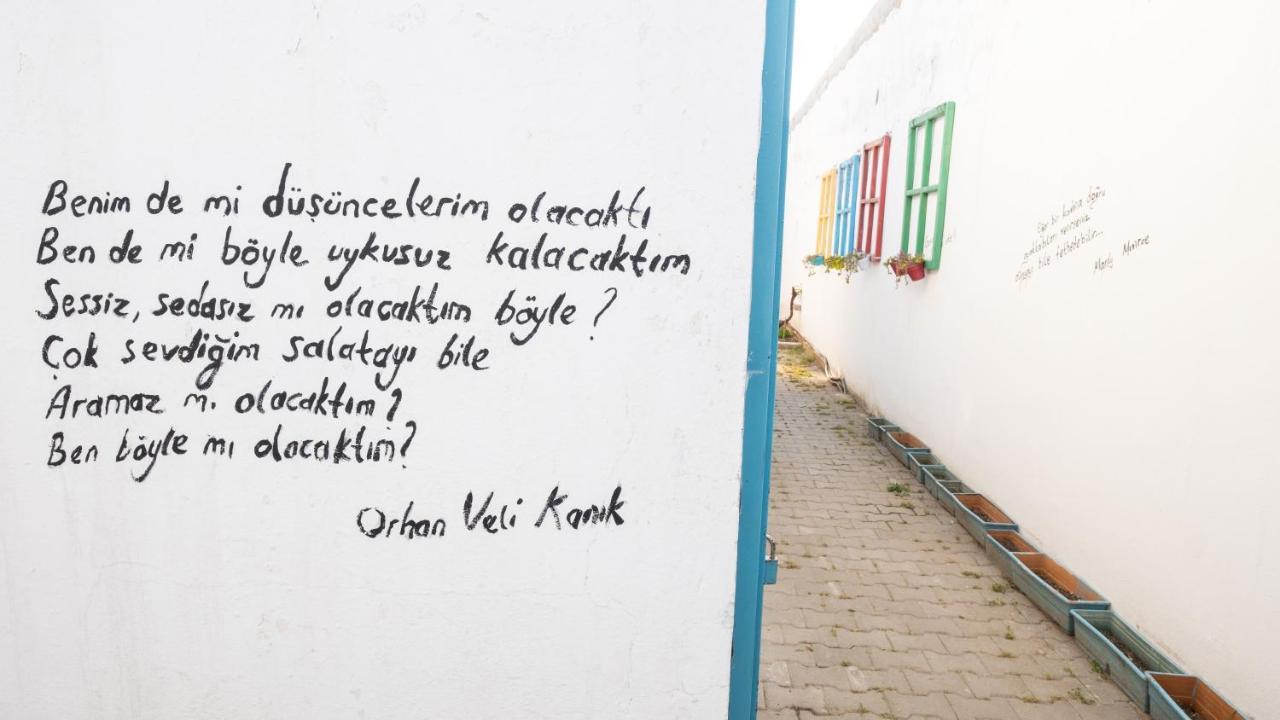 Benim de mi düşüncelerim olacaktı
Ben de mi böyle uykusuz kalacaktım
Sessiz, sedasız mı olacaktım böyle ?
Çok sevdiğim salatayı bile
Aramaz mı olacaktım?
Ben böyle mı olacaktım?
Orhan Veli Kanık
Eğer bir kadına doğru
bile fethedebilir...